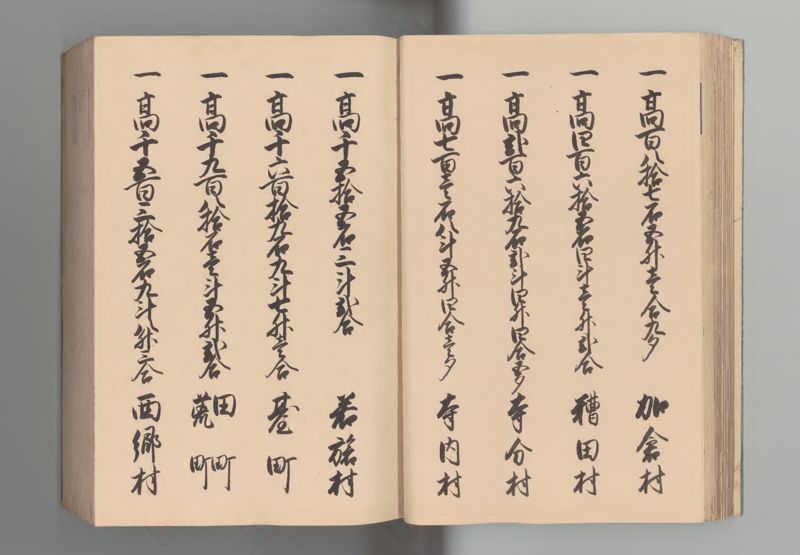 一高百八拾七石五升壱合九夕 加倉村
一高四百六拾五石四斗壱升弐合 糟田村
一高弐百六拾九石弐斗四升四合五夕 寺分村
一高七百壱石八斗五升四合壱夕 寺内村
一高千五拾五石二斗弐合 若旅村
一高千六百拾九石九斗七升壱合 臺町
一高千九百八拾石壱斗五升弐合 田町 荒町
一高千五百三拾五石九斗八升二合 西郷村